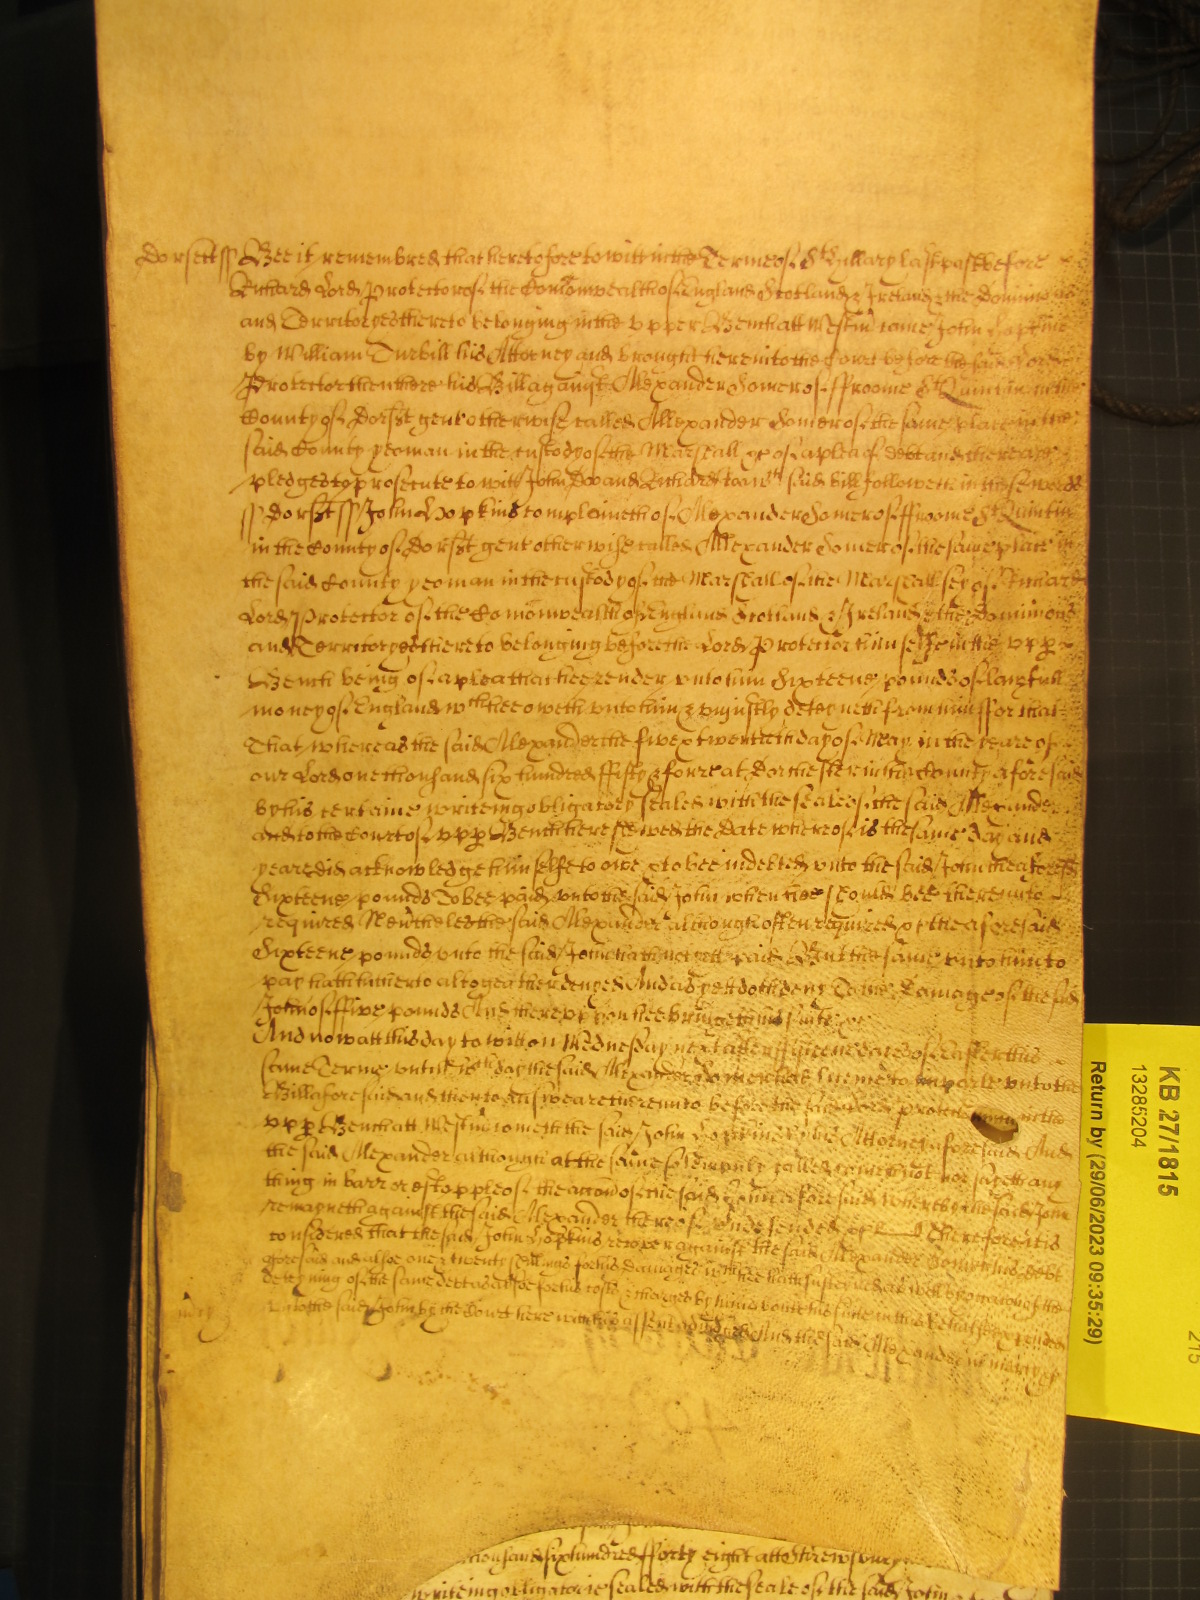 Dorsett ss Bee it remembred that heretofore to witt in the Terme of St Hillary last past before
Richard Lord Protector of the Comonwealth of England Scotland & Ireland & the Dominions
and Territoryes thereto belonging in the upper Bench att Westm̃ came John Hopkins
by William Turbill his Attorney and brought here into the Court before the said Lord
Protector then there his Bill against Alexander Gomer of ffroome St Quintin in the
County of Dorset gent otherwise called Allexander Gomer of the same place in the
said County yeoman in the custody of the Marshall &c of a plea of debt and there are
pledges to prosecute to witt John Doo and Richard Roo wch said bill followeth in these words
ss Dorset ss John Hopkins complaineth of Allexander Gomer of ffroome St Quintin
in the County of Dorset gent otherwise called Allexander Gomer of the same place in
the said County yeoman in the custody of the Marshall of the Marshallsey of Richard
Lord Protector of the Comonwealth of England Scotland & Ireland & the Dominions
and Territoryes thereto belonging before the Lord Protector himselfe in the upp
Bench being of a plea that hee render unto him Sixteene pounds of lawfull
money of England wch hee oweth unto him & unjustly deteyneth from him ffor that
That whereas the said Allexander the five & twentith day of May in the yeare of
our Lord one thousand six hundred ffifty & foure at Dorchester in the County aforesaid
by his certaine writeing obligatory sealed with the seale of the said Allexander
and to the Court of upp Bench here shewed the date whereof is the same day and
yeare did acknowledge himselfe to owe & to bee indebted unto the said John the aforesd
Sixteene pounds To bee paid unto the said John when hee should bee thereunto
required Neverthelesse the said Allexander although often required &c the aforesaid
Sixteene pounds unto the said John hath not yett paid But the same unto him to
pay hath hitherto altogether denyed And as yett doth deny To the damage of the said
John of ffive pounds And thereupon hee bringeth his suite &c
And now att this day to witt on Wednesday next after ffifteene dayes of Easter this
same Terme untill wch day the said Allexander Gomer had licence to imparle unto the
Bill aforesaid and then to answeare thereunto before the said Lord Protector in the
upp Bench att Westm̃ cometh the said John Hopkins by his Attorney aforesaid And
the said Allexander although at the same day solempnly called cometh not nor sayeth any
thing in barr or estopple of the accon of the said John aforesaid whereby the said John
remayneth against the said Allexander thereof undefended &c Therefore it is
considered that the said John Hopkins recover against the said Allexander Gomer his debt
aforesaid and alsoe one & twenty shillings for his damages wch hee hath susteined as well by occasion of the
deteyning of the same debt as alsoe for his costs & charges by him about his suite in this behalfe expended
unto the said John by the Court here with his assent adjudged And the said Allexander in mercy &c
mercy
thousand six hundred fforty eight att Shrewsbury
writeing obligatorie sealed with the seale of the said John
KB 27/1815
13285204
Return by (29/06/2023 09:35:29)
215